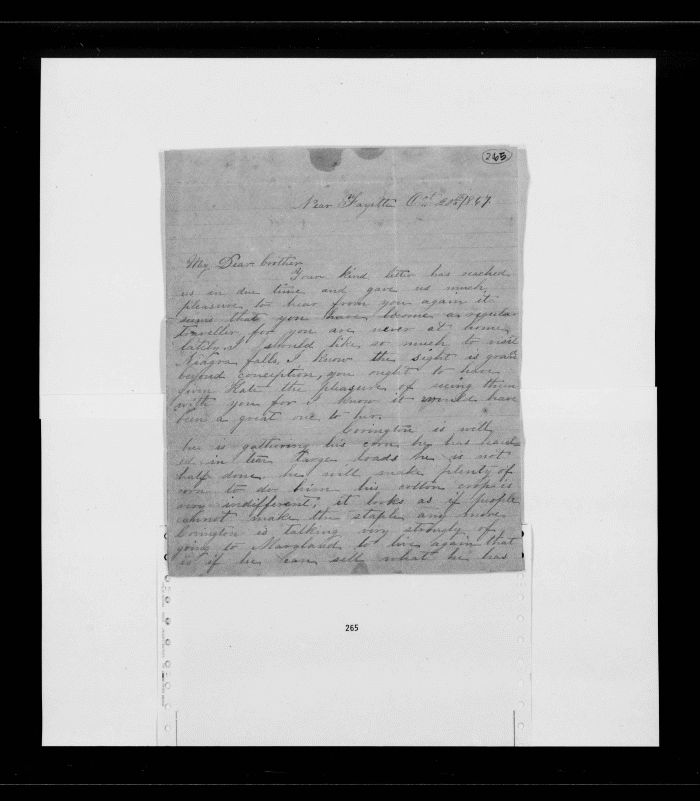 265
Near Fayette Oct 20th/867
My Dear brother
Your kind letter has reached
us in due time and gave us much
pleasure to hear from you again it
seems that you have become a regular
traveller for you are never at home
lately. I should like so much to visit
Niagra falls, I know the sight is grand
beyond conception, you ought to have
given Kate the pleasure of seeing them
with you for I know it would have
been a great one to her.
Covington is well
he is gathering his corn, he has haul
ed in ten large loads he is not
half done he will make plenty of
corn to do him his cotton crop is
very indifferent, it looks as if people
cannot make the staple any more
Covington is talking very strongly of
going to Maryland to live again that
is if he can sell what he has
265